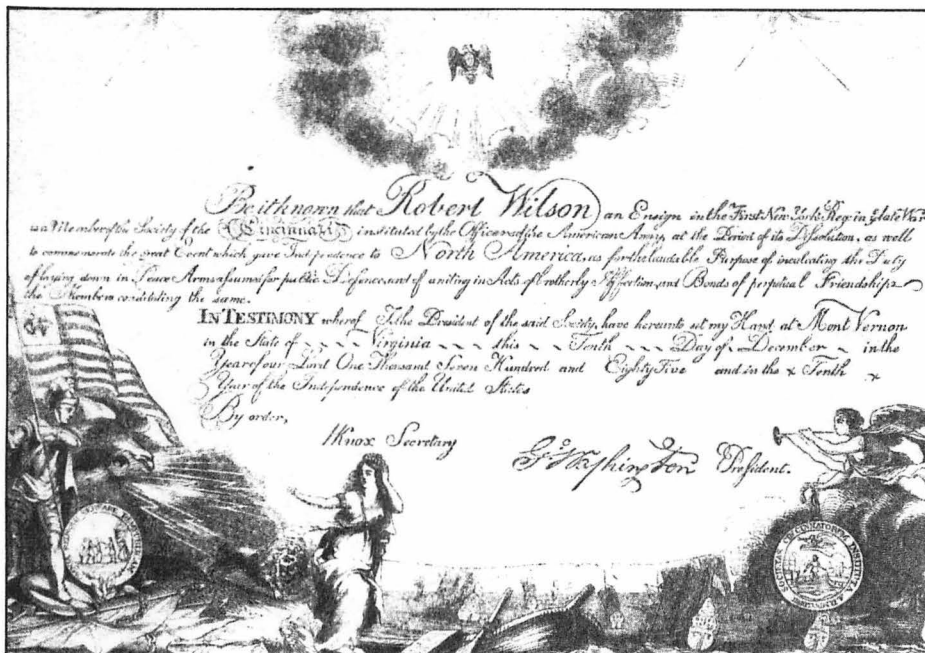 Be it known that Robert Wilson an Ensign in the First New York Reg: in y late War
is a Member of the Society of the Cincinnati, instituted by the Officers of the American Army, at the Period of its Dissolution, as well
to commemorate the great Event which gave Independence to North America, as for the laudable Purpose of inculcating the Duty
of laying down in Peace Arms assumed for public Defence, and of uniting in Acts of brotherly Affection, and Bonds of perpetual Friendship
the Members constituting the same.
IN TESTIMONY whereof I, the President of the said Society, have hereunto set my Hand at Mont Vernon
in the State of Virginia this Tenth Day of December in the
Year of our Lord One Thousand Seven Hundred and Eighty Five and in the Tenth
Year of the Independence of the United States
By order,
HKnox Secretary
Go Washington President.
SOCIETAS CINCINNATORUM INSTITUTA